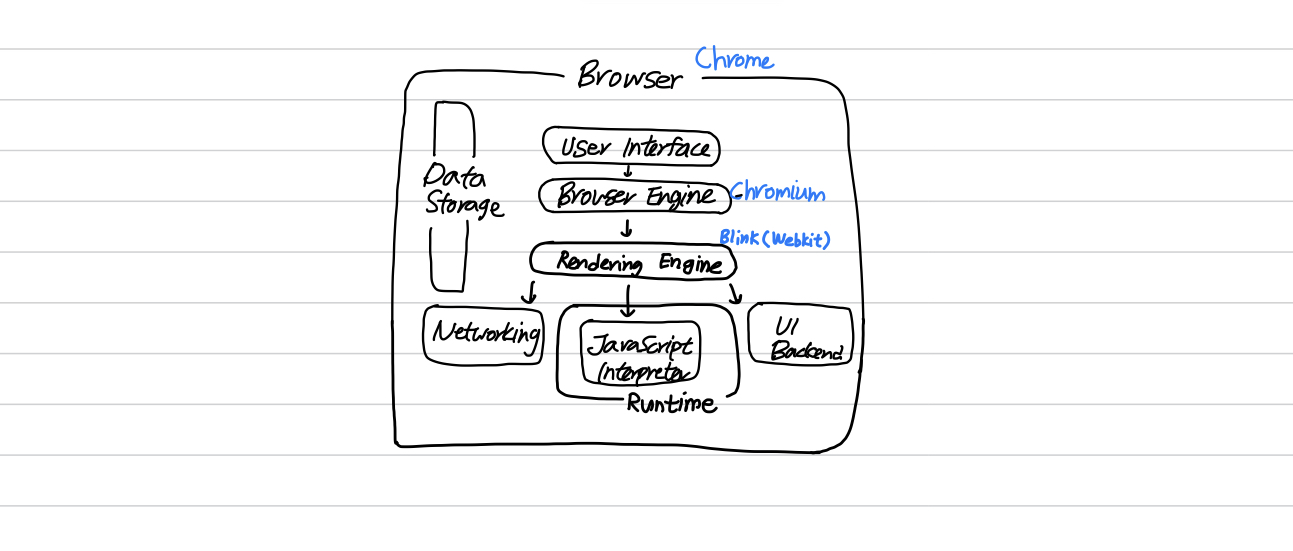 Browser Chrome
User Interface
Data
Storage
Browser Engine Chromium
Blink (Webkit)
Rendering Engine
Networking
JavaScript
Interpreter
Runtime
UI
Backend